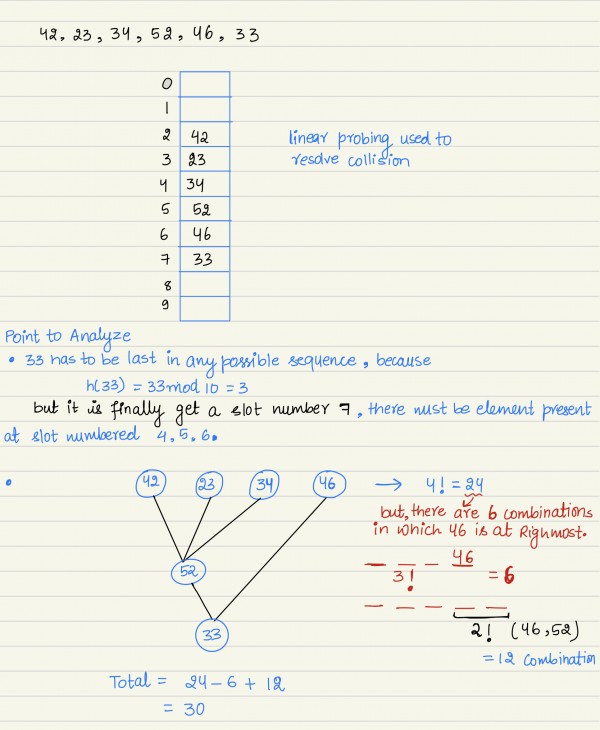 42, 23, 34, 52, 46, 33
0
1
2 42
3 23
4 34
5 52
6 46
7 33
8
9
linear probing used to
resolve collision
Point to Analyze
• 33 has to be last in any possible sequence, because
h(33) = 33 mod 10 = 3
but it is finally get a slot number 7, there must be element present
at slot numbered 4, 5, 6.
• 42 23 34 46 → 4! = 24
but, there are 6 combinations
in which 46 is at Righmost.
_ _ _ 46
3! = 6
52
_ _ _ _ _
2! (46, 52)
33
= 12 combination
Total = 24 - 6 + 12
= 30